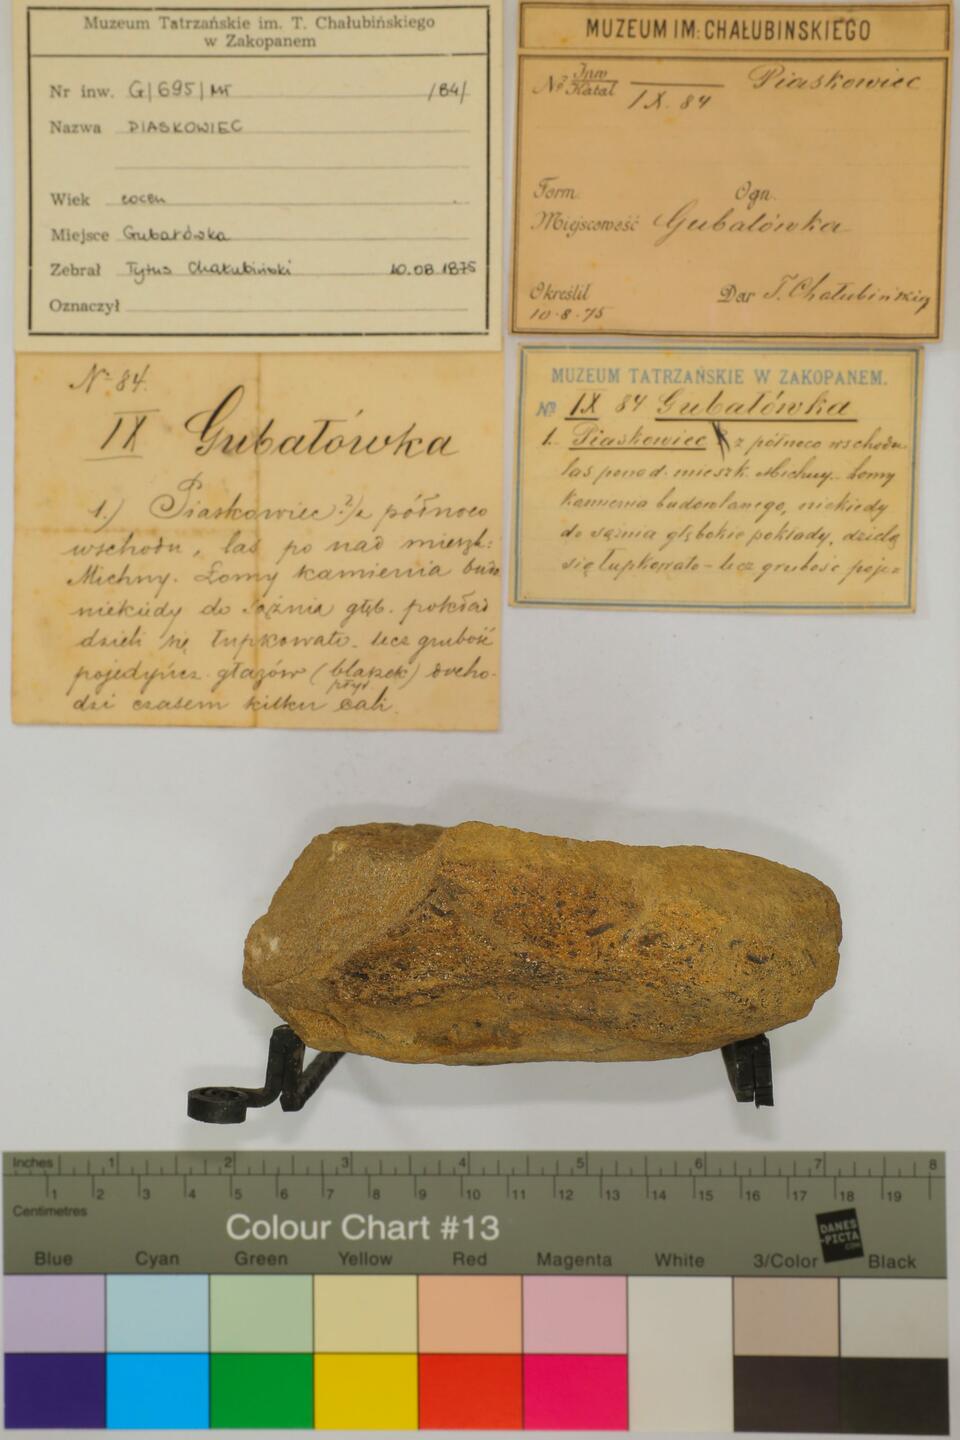 Muzeum Tatrzańskie im. T. Chałubińskiego
w Zakopanem
Nr inw. G/695/MT /84/
Nazwa PIASKOWIEC
Wiek eocen
Miejsce Gubałówska
Zebrał Tytus Chałubiński 10.08.1875
Oznaczył
MUZEUM IM: CHAŁUBINSKIEGO
No Inw Piaskowiec
Katal IX. 84
Form. Ogn.
Miejscowość Gubałówka
Określił Dar T. Chałubińskieg
10-8-75
No 84.
IX Gubałówka
1.) Piaskowiec ?) z północo
wschodu, las po nad mieszk:
Michny. Łomy kamienia budo
niekiedy do sążnia głęb. pokład
dzieli się łupkowato - lecz grubość
pojedyńcz. głazów (blaszek) docho-
płyt
dzi czasem kilku cali.
MUZEUM TATRZAŃSKIE W ZAKOPANEM.
No IX 84 Gubałówka
1. Piaskowiec z północo wschodu
las ponad mieszk. Michny. Łomy
kamienia budowlanego, niekiedy
do sążnia głębokie pokłady, dzielą
się łupkowato - lecz grubość poje=
Inches 1 2 3 4 5 6 7 8
1 2 3 4 5 6 7 8 9 10 11 12 13 14 15 16 17 18 19
Centimetres
Colour Chart #13
DANES
-PICTA
.COM
Blue Cyan Green Yellow Red Magenta White 3/Color Black